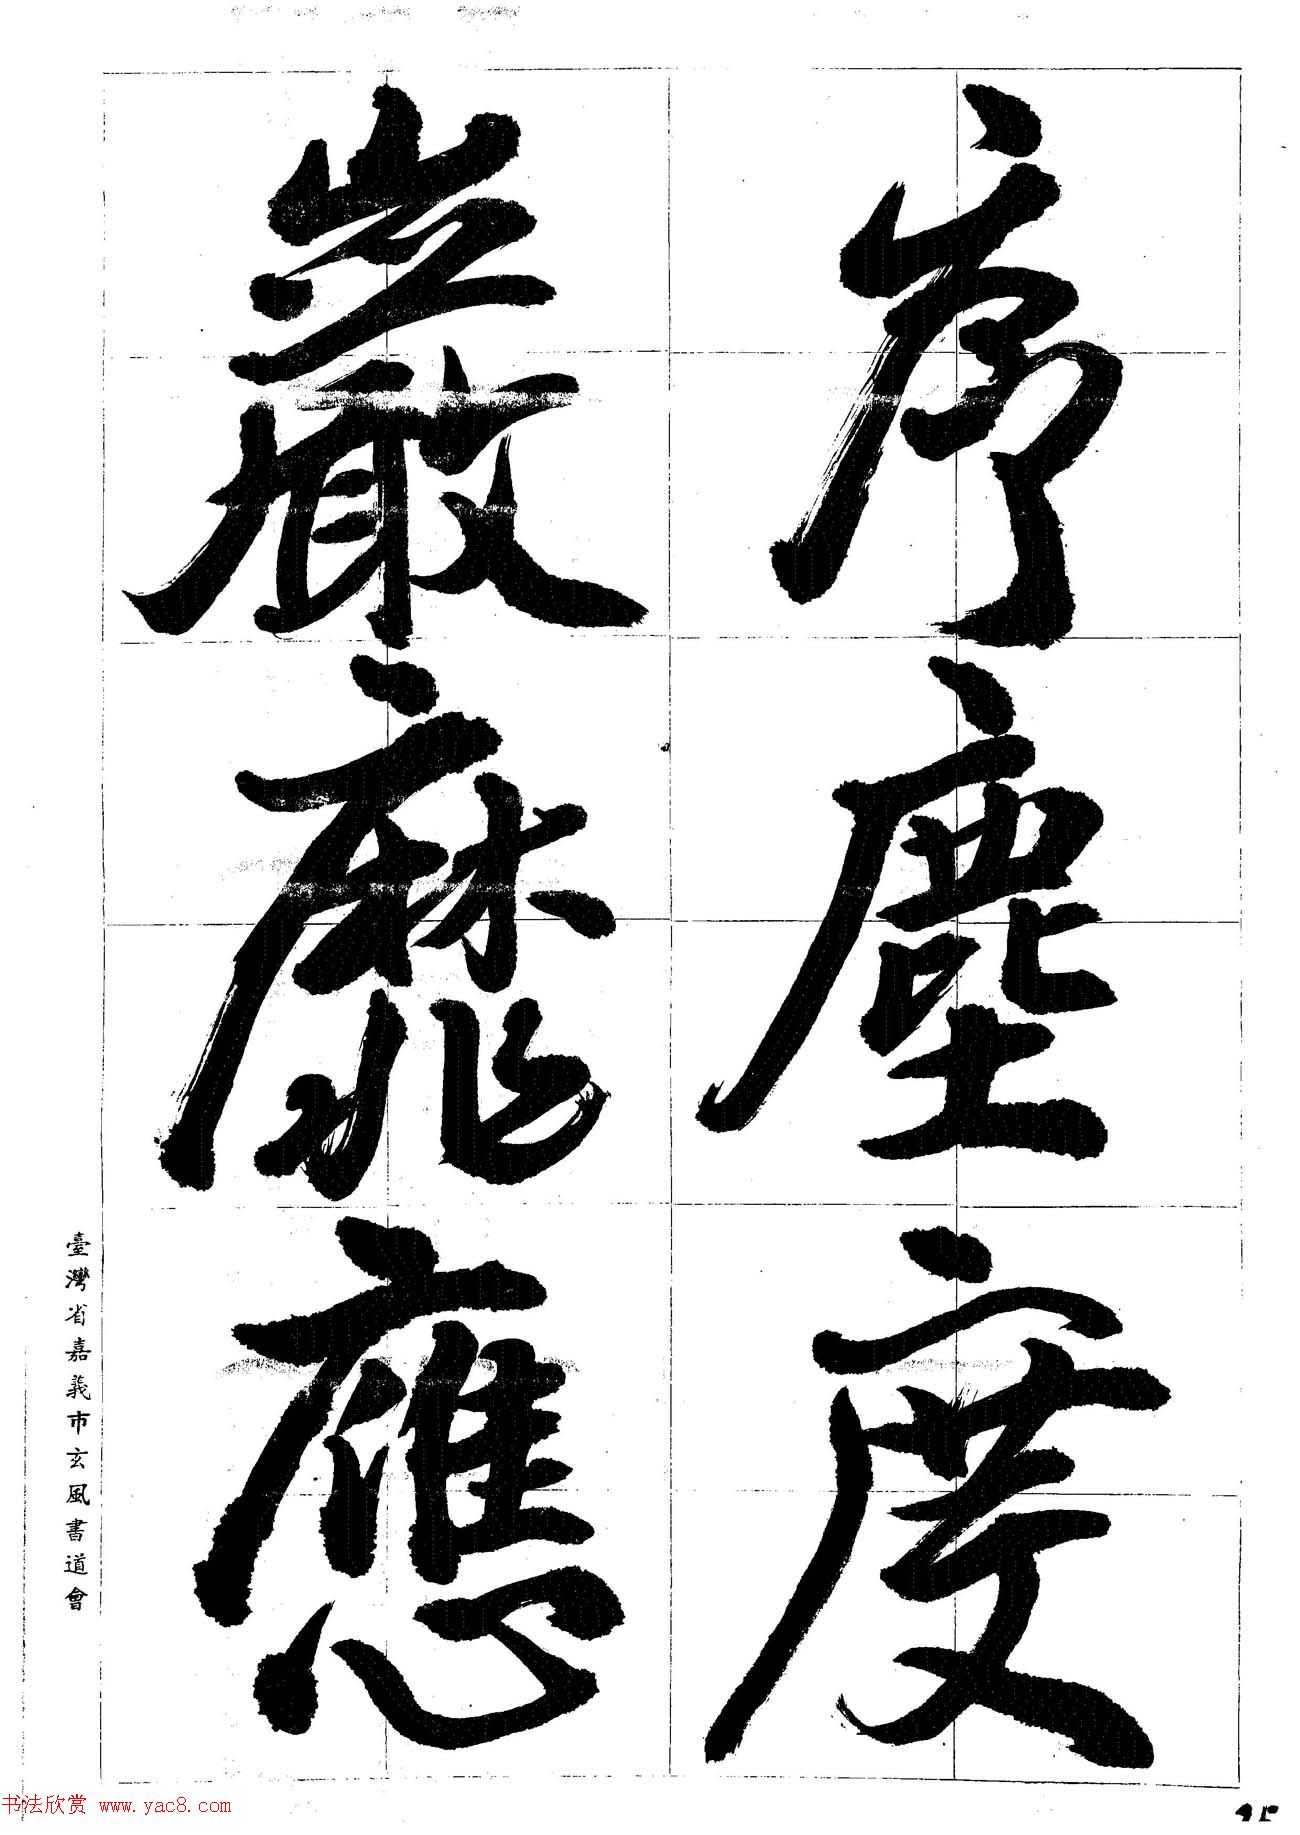 序塵度
嚴靡應
臺灣省嘉義市玄風書道會
书法欣赏 www.yac8.com